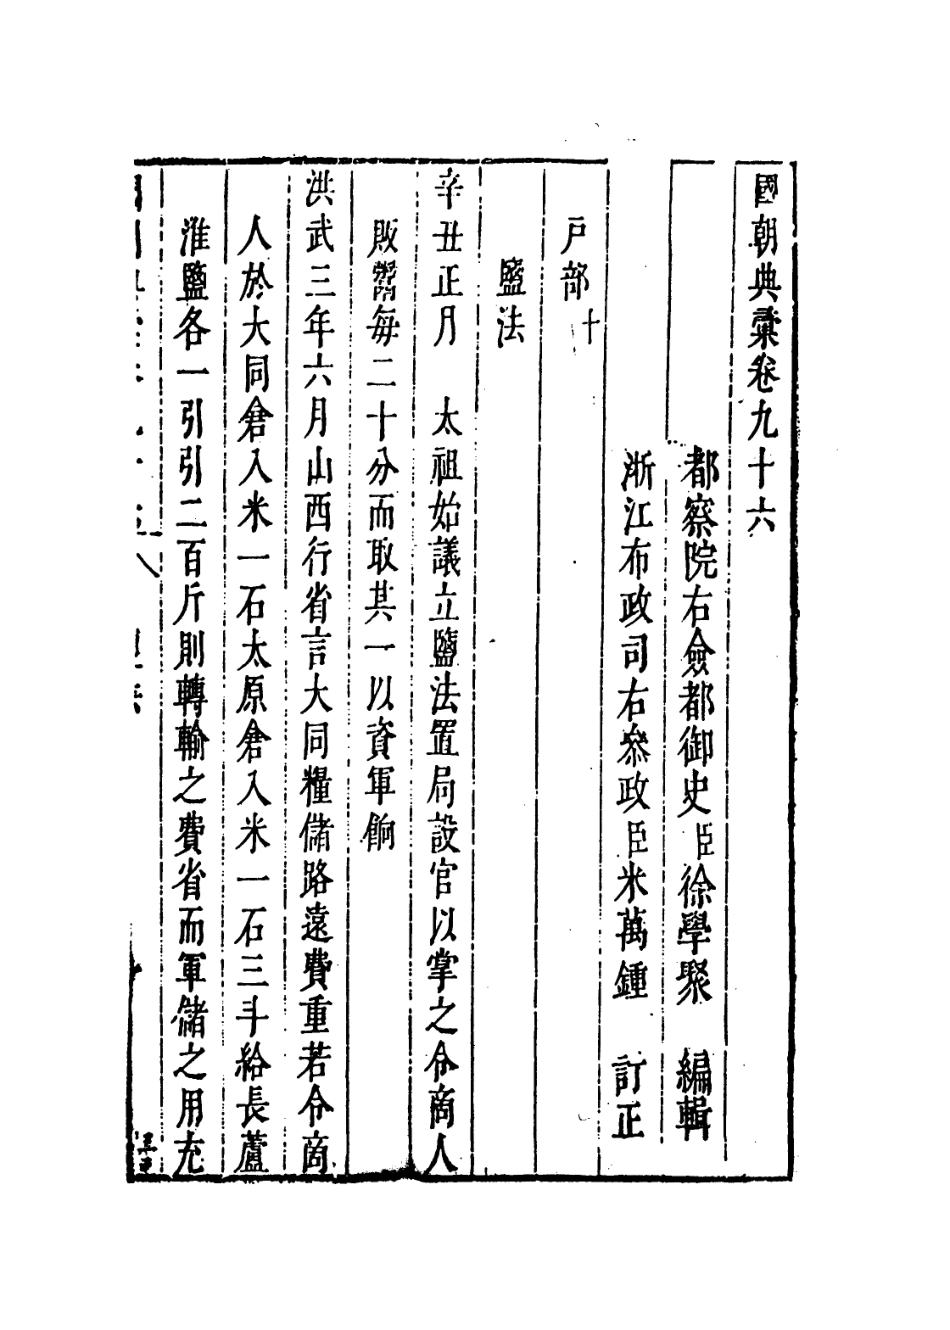 國朝典彙卷九十六
都察院右僉都御史臣徐學聚 編輯
浙江布政司右叅政臣米萬鍾 訂正
戸部十
鹽法
辛丑正月 太祖始議立鹽法置局設官以掌之令商人
販鬻每二十分而取其一以資軍餉
洪武三年六月山西行省言大同糧儲路遠費重若令商
人於大同倉入米一石太原倉入米一石三斗給長蘆
淮鹽各一引引二百斤則轉輸之費省而軍儲之用充